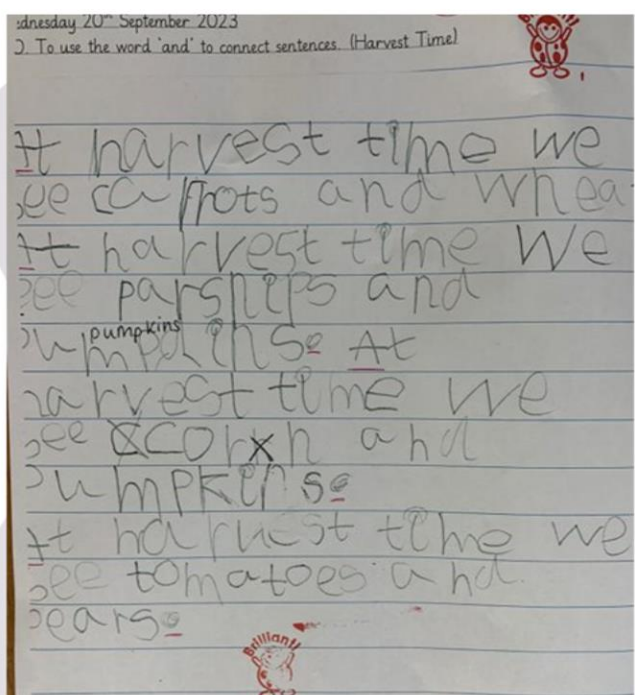 ednesday 20th September 2023
O. To use the word 'and' to connect sentences. (Harvest Time)
Brilliant!
At harvest time we
see carrots and whea
At harvest time We
see parsnips and
pumpkins
At
harvest time we
see corn and
pumpkins.
At harvest time we
see tomatoes and
pears.
Brilliant!